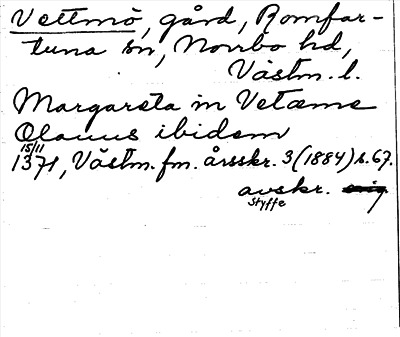 Vettmö, gård, Romfar-
tuna sn, Norrbo hd,
Västm. l.
Margareta in Vetæme
Olauus ibidem
15/11
1371, Västm. fm. årsskr. 3 (1884) s. 67.
avskr. orig.
Styffe